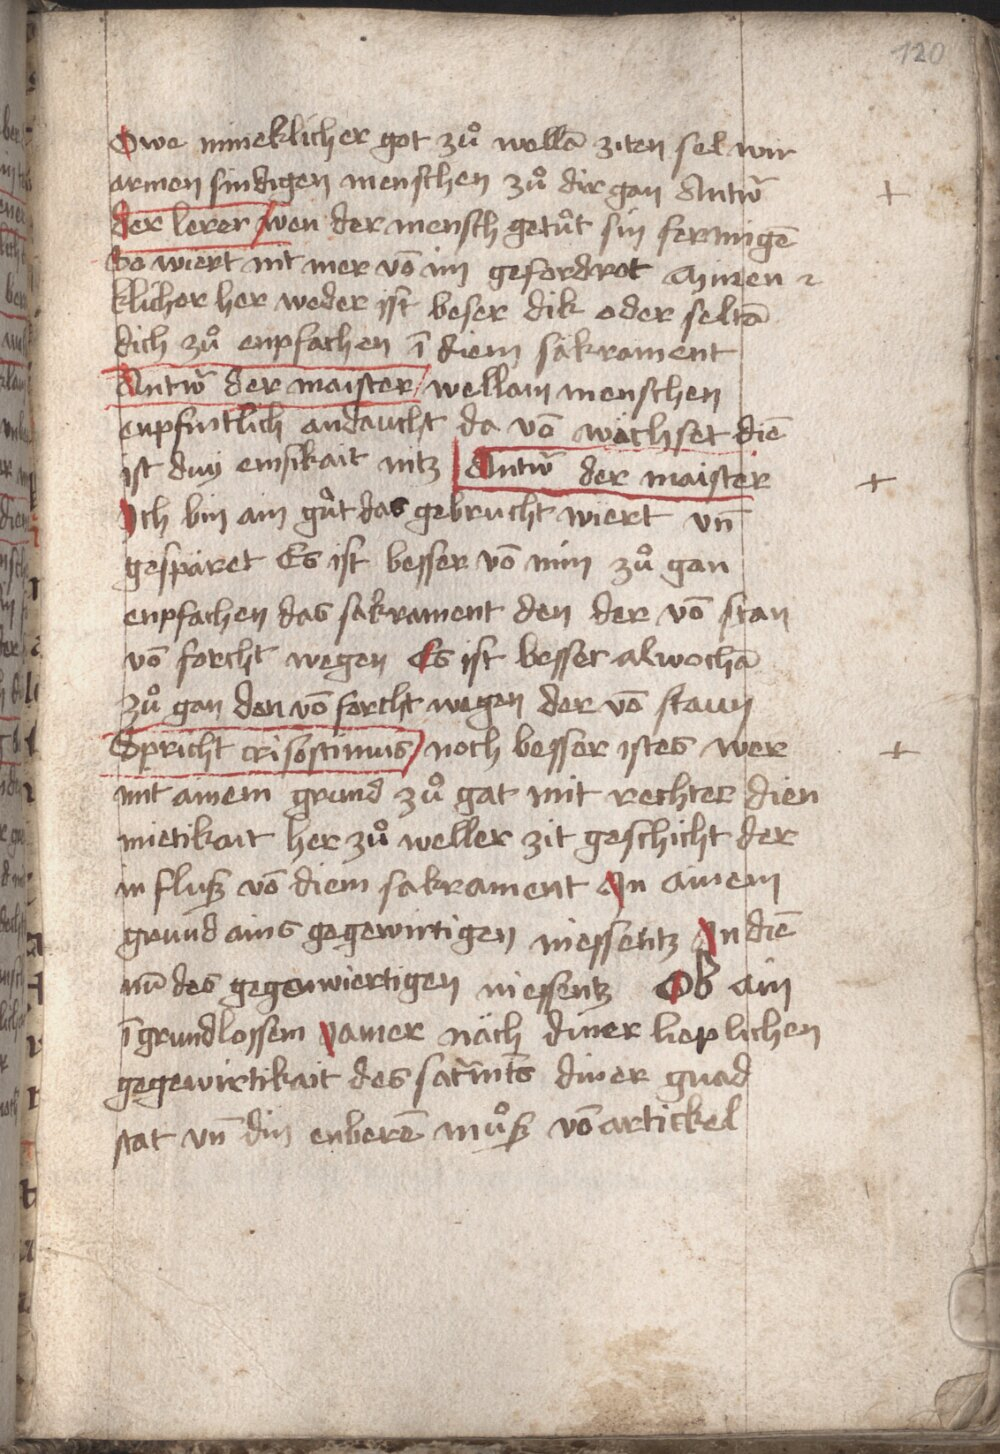 120
Owe mineklicher got zů wellā ziten sel wir
armen sindigen menschen zů dir gan Antw̄
der lerer wen der mensch getůt sin fermigē
So wiert nit mer vō im gefordrot Aminen
klicher her weder ist beser dik oder seltā
dich zů enpfachen ī diem sakrament
Antw̄ der maister wellam menschen
enpfintlich andaucht da vō wächset diē
ist duij emsikait nitz Antw̄ der maister
Ich bin ain gůt das gebrucht wiert vn̄
gespäret Es ist besser vō min zů gan
enpfachen das sakrament den der vō stan
vō forcht wegen Es ist besser alwochā
zů gan den vō forcht wegen der vō staun
Spricht crisostimus noch besser istes wer
mit ainem grund zů gat mit rechter dien
mietikait her zů weller zit geschicht der
in flusz vō diem sakrament In ainem
grund ains gegewirtigen niessentz In diē
nū des gegenwiertigen niessentz Ob ain
ī grundlossem Jamer näch diner lieplichen
gegewirtikait des sacrm̄ts diner gnad
stat vn̄ din enberē můsz vō artickel